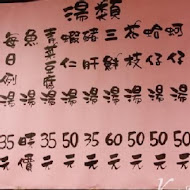 湯類
蚵仔湯 50元
蛤仔湯 50元
花枝湯 50元
三鮮湯 60元
豬肝湯 35元
蝦仁湯 50元
青菜豆腐湯 35元
魚湯 時價
每日例湯 35元